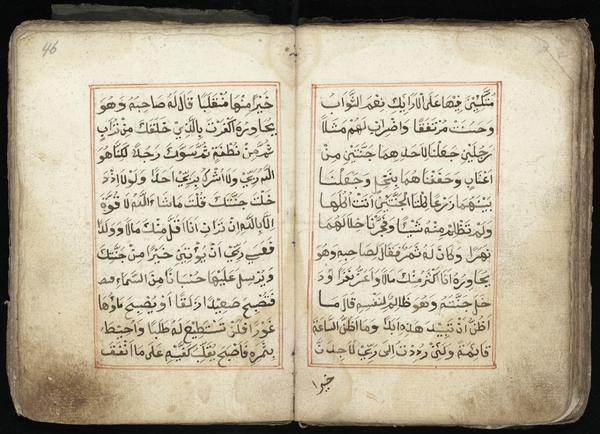 مُتَّكِئِينَ فِيهَا عَلَى الْارَايِكِ نِعْمَ الثَّوَابُ
وَحَسُنَتْ مُرْتَفَقًا وَاضْرِبْ لَهُمْ مَثَلًا
رَجُلَيْنِ جَعَلْنَا لِاَحَدِهِمَا جَنَّتَيْنِ مِنْ
اَعْنَابٍ وَحَفَفْنَاهُمَا بِنَخْلٍ وَجَعَلْنَا
بَيْنَهُمَا زَرْعًا كِلْتَا الْجَنَّتَيْنِ اٰتَتْ اُكُلَهَا
وَلَمْ تَظْلِمْ مِنْهُ شَيْئًا وَفَجَّرْنَا خِلَالَهُمَا
نَهَرًا وَكَانَ لَهُ ثَمَرٌ فَقَالَ لِصَاحِبِهِ وَهُوَ
يُحَاوِرُهُ اَنَا اَكْثَرُ مِنْكَ مَالًا وَاَعَزُّ نَفَرًا وَدَ
خَلَ جَنَّتَهُ وَهُوَ ظَالِمٌ لِنَفْسِهِ قَالَ مَا
اَظُنُّ اَنْ تَبِيدَ هٰذِهِ اَبَدًا وَمَا اَظُنُّ السَّاعَةَ
قَائِمَةً وَلَئِنْ رُدِدْتُ اِلَى رَبِّي لَاَجِدَنَّ
خيرا
46
خَيْرًا مِنْهَا مُنْقَلَبًا قَالَ لَهُ صَاحِبُهُ وَهُوَ
يُحَاوِرُهُ اَكَفَرْتَ بِالَّذِي خَلَقَكَ مِنْ تُرَابٍ
ثُمَّ مِنْ نُطْفَةٍ ثُمَّ سَوّٰكَ رَجُلًا لٰكِنَّا هُوَ
اللّٰهُ رَبِّي وَلَا اُشْرِكُ بِرَبِّي اَحَدًا وَلَوْلَا اِذْ دَ
خَلْتَ جَنَّتَكَ قُلْتَ مَاشَاءَ اللّٰهُ لَا قُوَّةَ
اِلَّا بِاللّٰهِ اِنْ تَرَنِ اَنَا اَقَلَّ مِنْكَ مَالًا وَوَلَدًا
فَعَسَى رَبِّي اَنْ يُؤْتِيَنِ خَيْرًا مِنْ جَنَّتِكَ
وَيُرْسِلَ عَلَيْهَا حُسْبَانًا مِنَ السَّمَاءِ
فَتُصْبِحَ صَعِيدًا زَلَقًا اَوْ يُصْبِحَ مَاؤُهَا
غَوْرًا فَلَنْ تَسْتَطِيعَ لَهُ طَلَبًا وَاُحِيطَ
بِثَمَرِهِ فَاَصْبَحَ يُقَلِّبُ كَفَّيْهِ عَلَى مَا اَنْفَقَ